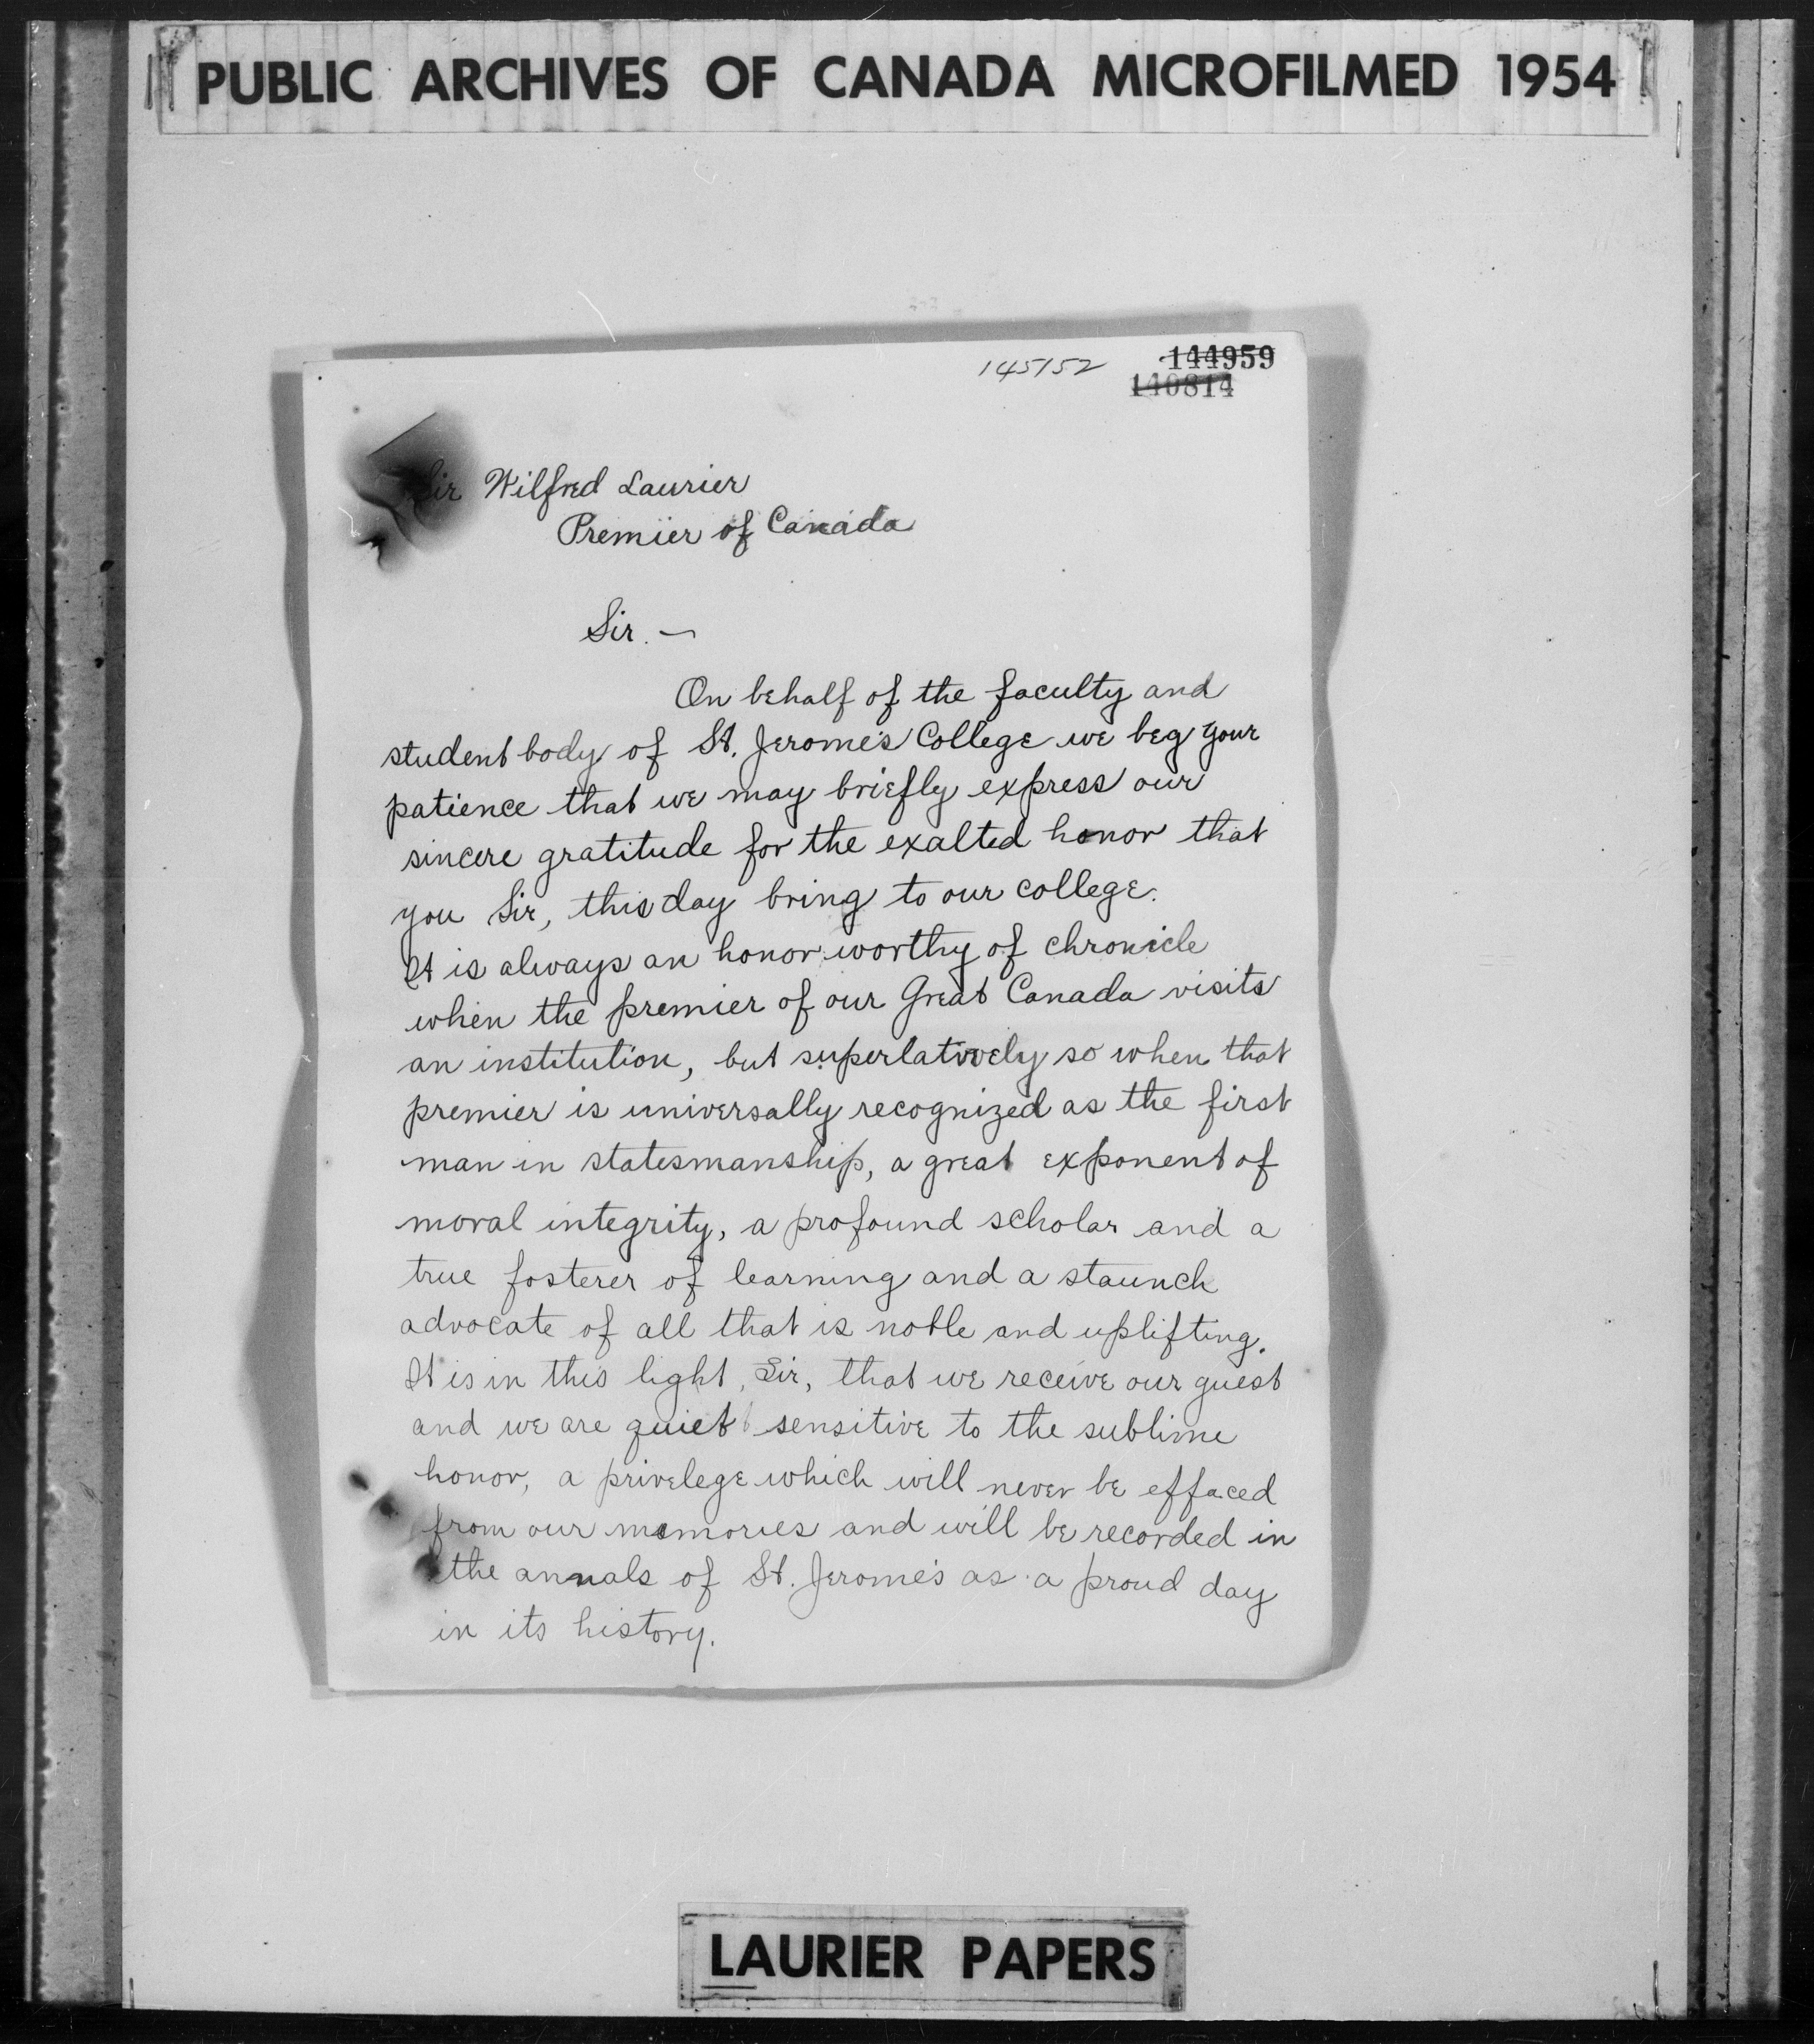 PUBLIC ARCHIVES OF CANADA MICROFILMED 1954
145152 144959
140814
Sir Wilfred Laurier
Premier of Canada
Sir. —
On behalf of the faculty and
student body of St. Jerome's College we beg your
patience that we may briefly express our
sincere gratitude for the exalted honor that
you Sir, this day bring to our college.
It is always an honor worthy of chronicle
when the premier of our Great Canada visits
an institution, but superlatively so when that
premier is universally recognized as the first
man in statesmanship, a great exponent of
moral integrity, a profound scholar and a
true fosterer of learning and a staunch
advocate of all that is noble and uplifting.
It is in this light, Sir, that we receive our guest
and we are quiet sensitive to the sublime
honor, a privelege which will never be effaced
from our memories and will be recorded in
the annals of St. Jerome's as a proud day
in its history.
LAURIER PAPERS